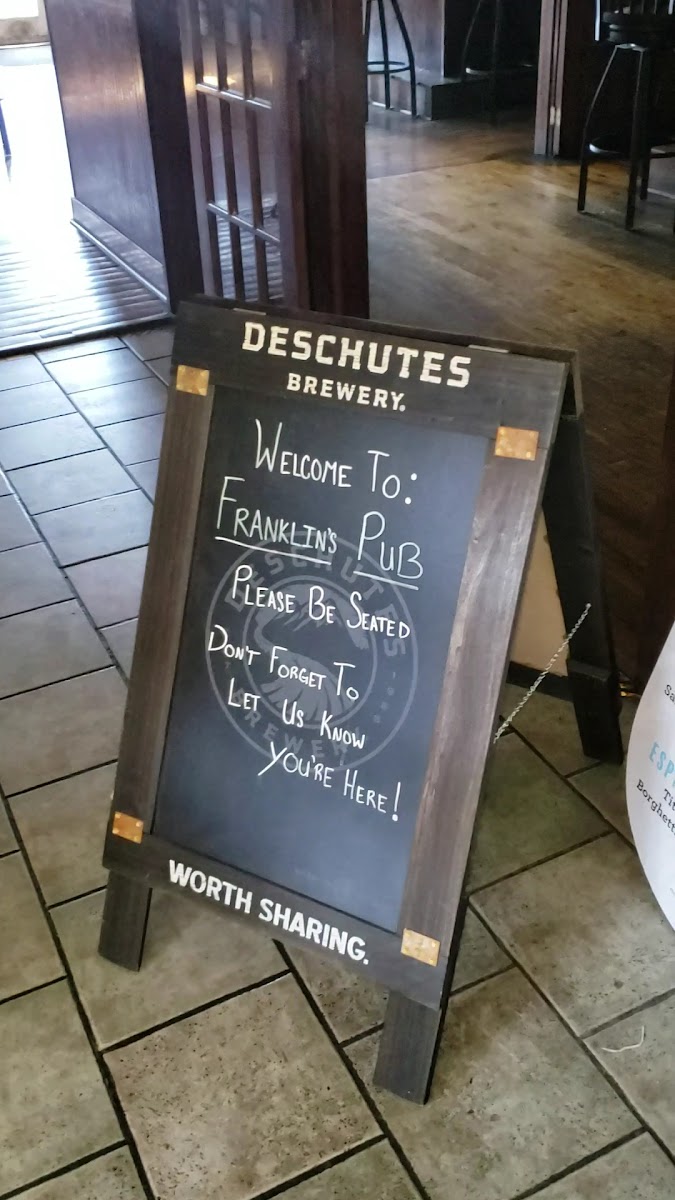 DESCHUTES
BREWERY.
WELCOME TO:
FRANKLIN'S PUB
PLEASE BE SEATED
DON'T FORGET TO
LET US KNOW
YOU'RE HERE!
DESCHUTES
BREWERY
WORTH SHARING.